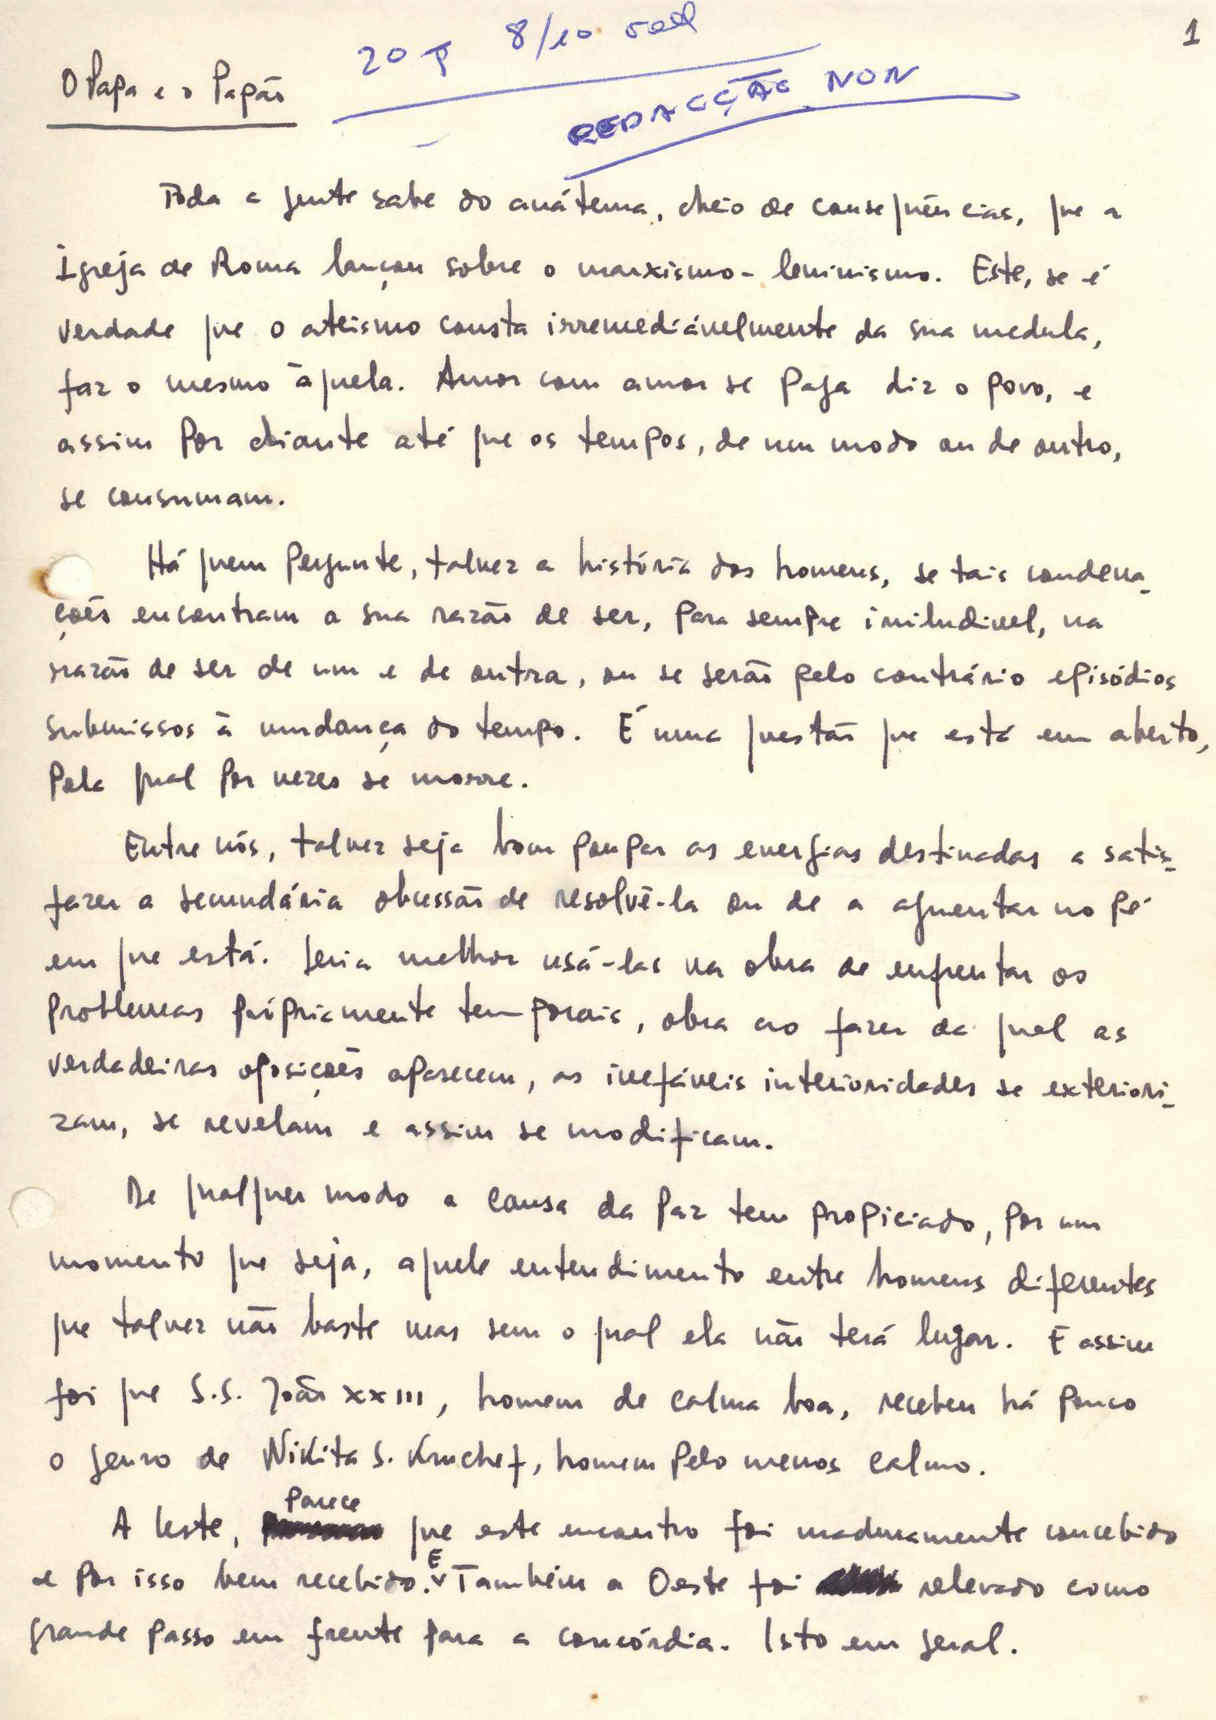 1
20 p 8/10
O Papa e o Papão
REDACÇÃO NON
Toda a gente sabe do anátema, cheio de consequências, que a
Igreja de Roma lançou sobre o marxismo-leninismo. Este, se é
verdade que o ateísmo consta irremediávelmente da sua medula,
faz o mesmo àquela. Amor com amor se paga diz o povo, e
assim por diante até que os tempos, de um modo ou de outro,
se consumam.
Há quem pergunte, talvez a história dos homens, se tais condena-
ções encontram a sua razão de ser, para sempre iniludivel, na
razão de ser de um e de outra, ou se serão pelo contrário episódios
submissos à mudança do tempo. É uma questão que está em aberto,
pela qual por vezes se morre.
Entre nós, talvez seja bom poupar as energias destinadas a satis-
fazer a secundária obcessão de resolvê-la ou de a aguentar no pé
em que está. Seria melhor usá-las na obra de enfrentar os
problemas própriamente temporais, obra ao fazer da qual as
verdadeiras oposições aparecem, as inefáveis interioridades se exteriori-
zam, se revelam e assim se modificam.
De qualquer modo a causa da paz tem propiciado, por um
momento que seja, aquele entendimento entre homens diferentes
que talvez não baste mas sem o qual ela não terá lugar. E assim
foi que S.S. João XXIII, homem de calma boa, recebeu há pouco
o genro de Nikita S. Kruchef, homem pelo menos calmo.
A leste, parece que este encontro foi maduramente concebido
e por isso bem recebido. E Também a Oeste foi relevado como
grande passo em frente para a concórdia. Isto em geral.